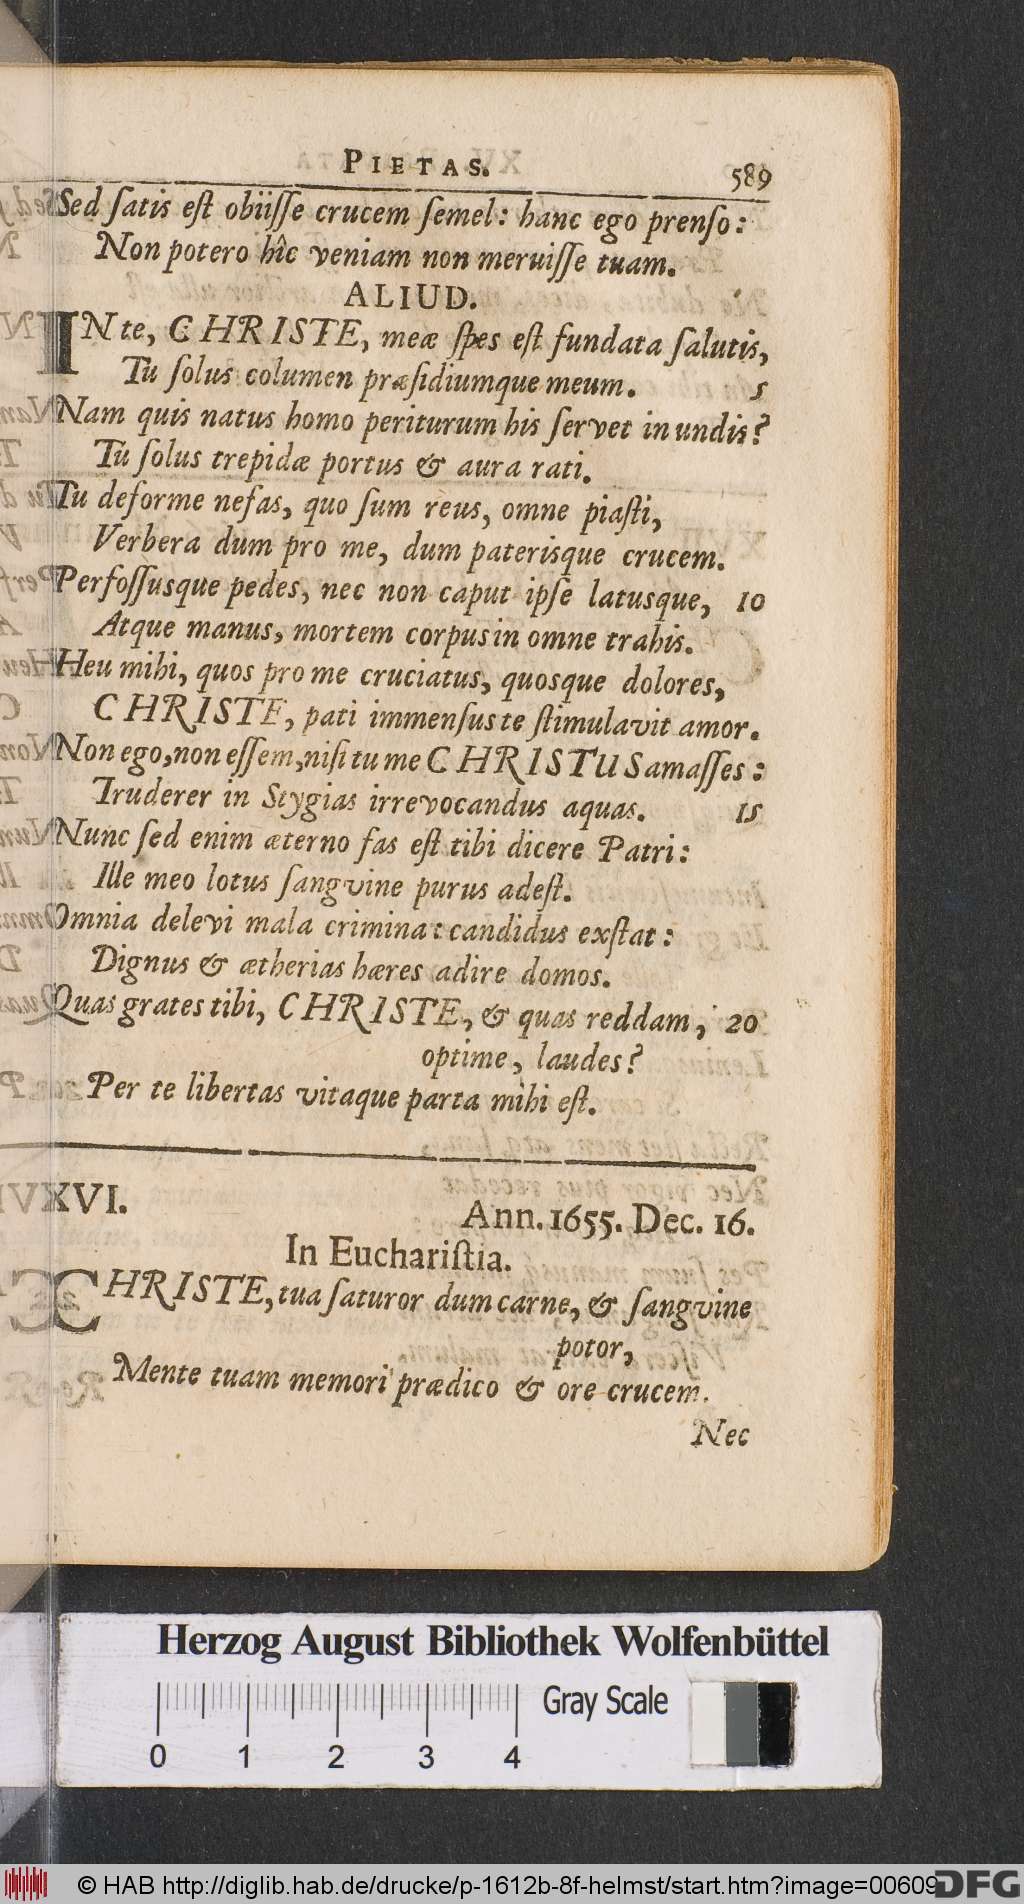 PIETAS. 589
Sed ſatis eſt obiiſſe crucem ſemel: hanc ego prenſo:
Non potero hîc veniam non meruiſſe tuam.
ALIUD.
IN te, CHRISTE, meæ ſpes eſt fundata ſalutis,
Tu ſolus columen præſidiumque meum. 5
Nam quis natus homo periturum his ſervet in undis?
Tu ſolus trepidæ portus & aura rati.
Tu deforme nefas, quo ſum reus, omne piaſti,
Verbera dum pro me, dum paterisque crucem.
Perfoſſusque pedes, nec non caput ipſe latusque, 10
Atque manus, mortem corpus in omne trahis.
Heu mihi, quos pro me cruciatus, quosque dolores,
CHRISTE, pati immenſus te ſtimulavit amor.
Non ego, non eſſem, niſi tu me CHRISTUS amaſſes:
Truderer in Stygias irrevocandus aquas. 15
Nunc ſed enim æterno fas eſt tibi dicere Patri:
Ille meo lotus ſangvine purus adeſt.
Omnia delevi mala crimina: candidus exſtat:
Dignus & ætherias hæres adire domos.
Quas grates tibi, CHRISTE, & quas reddam, 20
optime, laudes?
Per te libertas vitaque parta mihi eſt.
XVI.
Ann. 1655. Dec. 16.
In Euchariſtia.
CHRISTE, tua ſaturor dum carne, & ſangvine
potor,
Mente tuam memori prædico & ore crucem.
Nec
Herzog August Bibliothek Wolfenbüttel
Gray Scale
0 1 2 3 4
© HAB http://diglib.hab.de/drucke/p-1612b-8f-helmst/start.htm?image=00609
DFG